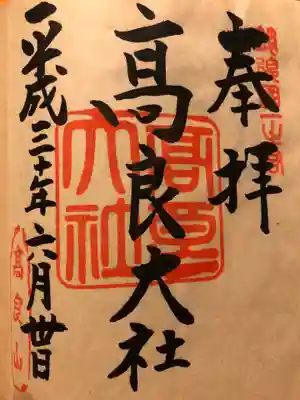 筑後國一之宮
奉拝
髙良大社
高良大社
平成三十年六月丗日
高良山